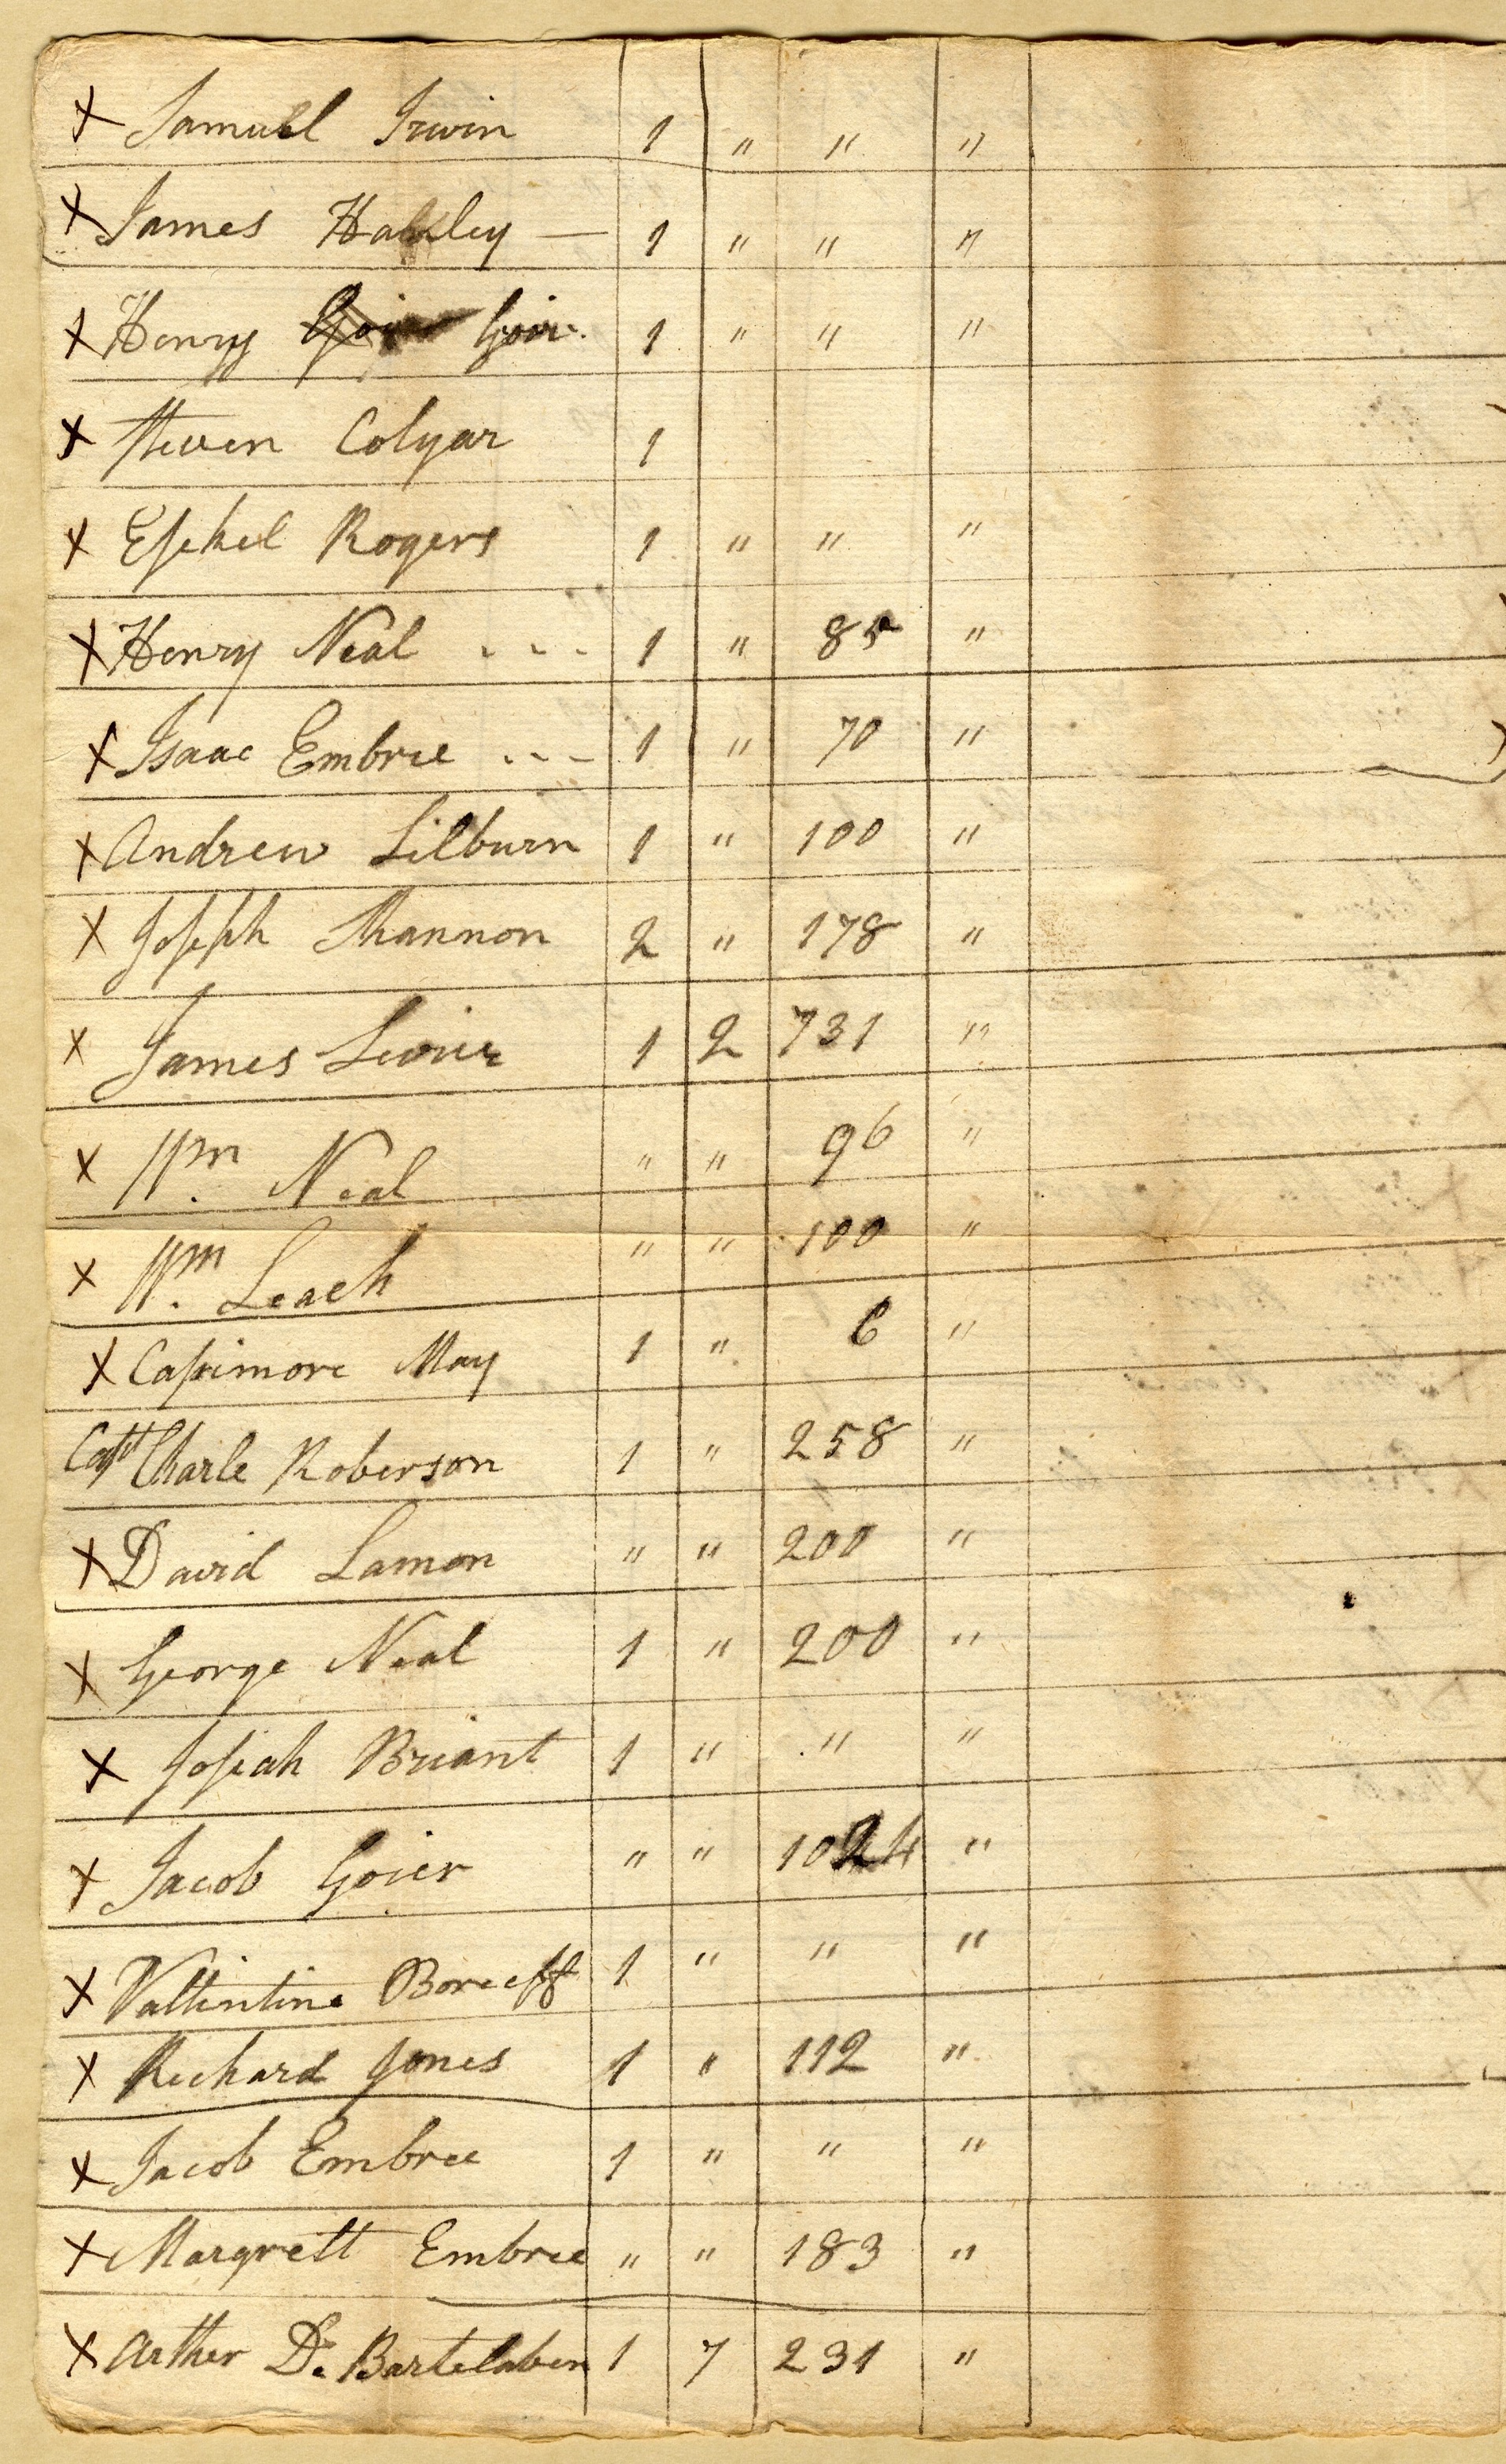 X Samuel Irwin 1 " " "
X James Hakley — 1 " " "
X Henry Goir. 1 " " "
X Steven Colyar 1
X Esekel Rogers 1 " " "
X Henry Neal - - - 1 " 85 "
X Isaac Embree - - - 1 " 70 "
X Andrew Lilburn 1 " 100 "
X Joseph Shannon 2 " 178 "
X James 1 2 731 "
X Wm. Neal " " 96 "
X Wm. Leach " " 100 "
X Cassimore May 1 " 6 "
Capt Charle Roberson 1 " 258 "
X David Lamon " " 200 "
X George Neal 1 " 200 "
X Josiah Briant 1 " " "
X Jacob Goier " " 1024 "
X Valtintine 1 " " "
X Richard Jones 1 " 112 "
X Jacob Embree 1 " " "
X Margrett Embree " " 183 "
X Arther De Bartelaben 1 7 231 "